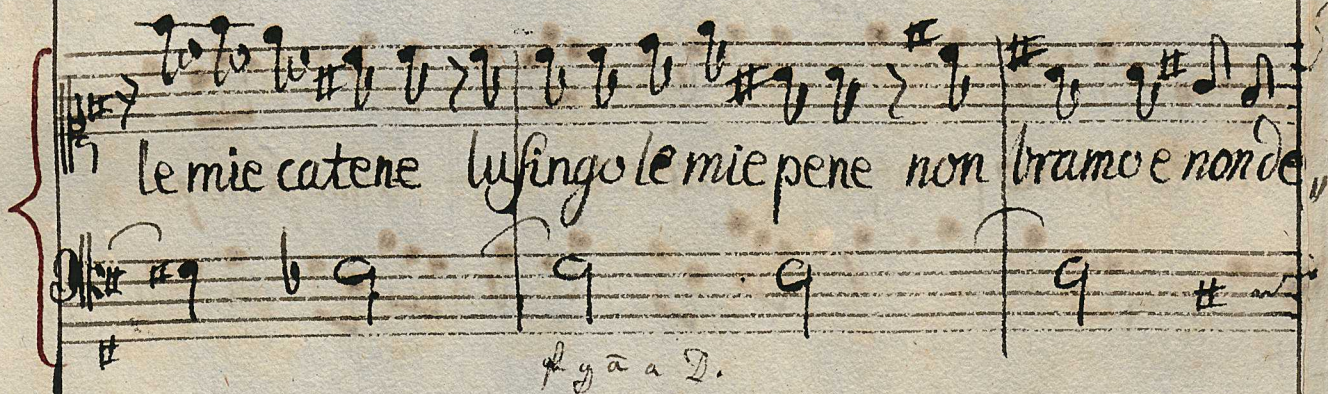 le mie catene lusingo le mie pene non bramo e non de
a D.